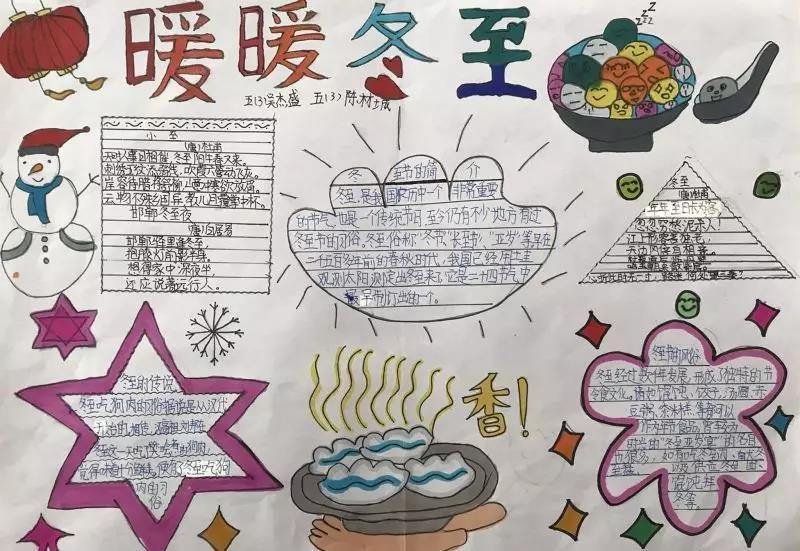 暖暖冬至
五(3)吴杰盛 五(3)陈材城
zzz
小至
(唐)杜甫
天时人事日相催,冬至阳生春又来。
刺绣五纹添弱线,吹葭六管动飞灰。
岸容待腊将舒柳,山意冲寒欲放梅。
云物不殊乡国异,教儿且覆掌中杯。
邯郸冬至夜
(唐)白居易
邯郸驿里逢冬至,
抱膝灯前影伴身。
想得家中深夜坐,
还应说着远行人。
冬至节的简介
冬至,是我国农历中一个非常重要
的节气,也是一个传统节日,至今仍有不少地方有过
冬至节的习俗。冬至俗称“冬节”、“长至节”、“亚岁”等。早在
二千五百多年前的春秋时代,我国已经用土圭
观测太阳测定出冬至来了,它是二十四节气中
最早制订出的一个。
冬至
(唐)杜甫
年年至日长为客,
忽忽穷愁泥杀人!
江上形容吾独老,
冬至的传说
冬至吃狗肉的习俗据说是从汉代
开始的。相传,汉高祖刘邦在
冬至这一天吃了樊哙煮的狗肉,
觉得味道十分鲜美,
便有了冬至吃狗
肉的习
俗
香!
冬至节的风俗
冬至经过数千年发展,形成了独特的节
令食文化。诸如馄饨、饺子、汤圆、赤
豆粥、黍米糕等都可以
作为年节食品。曾较为
时兴的“冬至亚岁宴”的名目
也很多,如
馄饨拜
冬等。